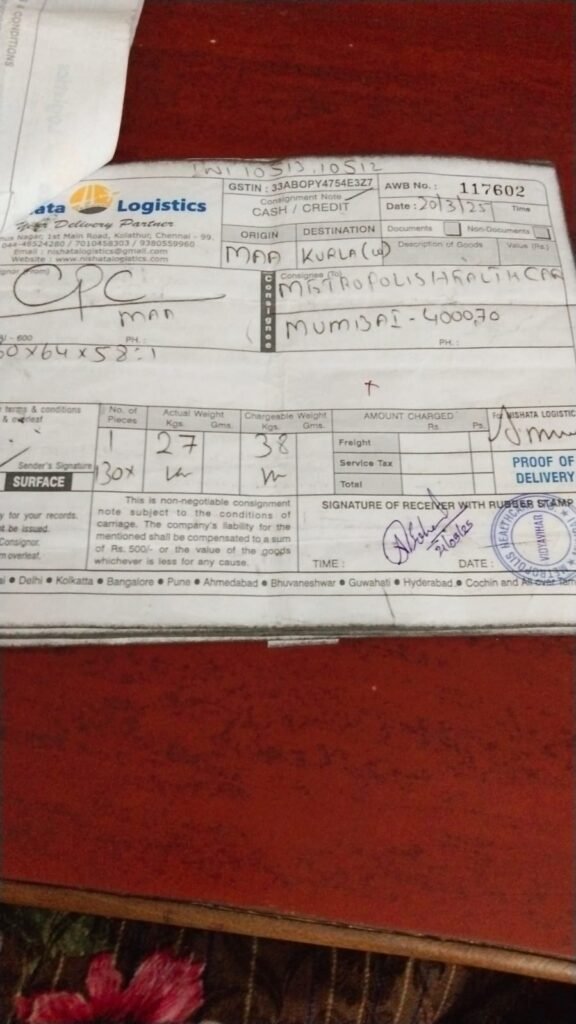 & CONDITIONS
INV 10513, 10512
ata Logistics
Your Delivery Partner
Nagar, 1st Main Road, Kolathur, Chennai - 99.
044-48524280 / 7010458303 / 9380559960
Email : nishatalogistics@gmail.com
Website : www.nishatalogistics.com
GSTIN : 33ABOPY4754E3Z7
Consignment Note
CASH / CREDIT
AWB No. : 117602
Date : 20/3/25 Time
ORIGIN DESTINATION
MAA KURLA (W)
Documents Non-Documents
Description of Goods Value (Rs.)
(From)
CPC
MAA
600 PH. :
Consignee
Consignee (To)
METROPOLIS HEALTH CAR
MUMBAI - 400070
PH. :
0x64x58:1
terms & conditions
& overleaf
Sender's Signature
SURFACE
No. of Pieces Actual Weight Chargeable Weight
Kgs. Gms. Kgs. Gms.
1 27 38
BOX
AMOUNT CHARGED
Rs. Ps.
Freight
Service Tax
Total
For NISHATA LOGISTIC
PROOF OF
DELIVERY
y for your records.
t be issued.
Consignor.
m overleaf.
This is non-negotiable consignment
note subject to the conditions of
carriage. The company's liability for the
mentioned shall be compensated to a sum
of Rs. 500/- or the value of the goods
whichever is less for any cause.
SIGNATURE OF RECEIVER WITH RUBBER STAMP
21/03/25
TIME : DATE :
METROPOLIS HEALTHCARE
VIDYAVIHAR
● Delhi ● Kolkatta ● Bangalore ● Pune ● Ahmedabad ● Bhuvaneshwar ● Guwahati ● Hyderabad ● Cochin and All over Tam